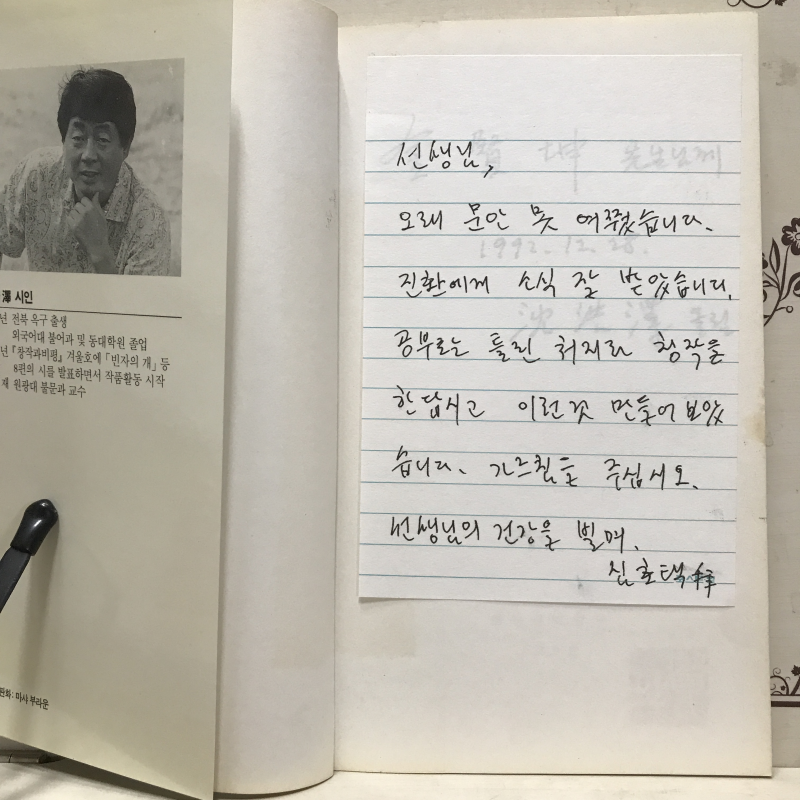 澤 시인
년 전북 옥구 출생
외국어대 불어과 및 동대학원 졸업
년 『창작과비평』 겨울호에 「빈자의 개」 등
8편의 시를 발표하면서 작품활동 시작
재 원광대 불문과 교수
판화: 마샤 부라문
선생님,
오래 문안 못 여쭈었습니다.
진환에게 소식 잘 받았습니다.
공부로는 틀린 처지라 창작을
한답시고 이런것 만들어 보았
습니다. 가르침을 주십시오.
선생님의 건강을 빌며.
심호택 拜
坤 선생님께
1992. 12. 28.
沈 浩 澤 드림